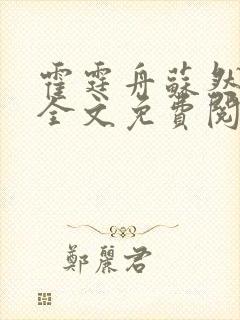 霍霆舟蘇然
全文免費閱
鄭麗君